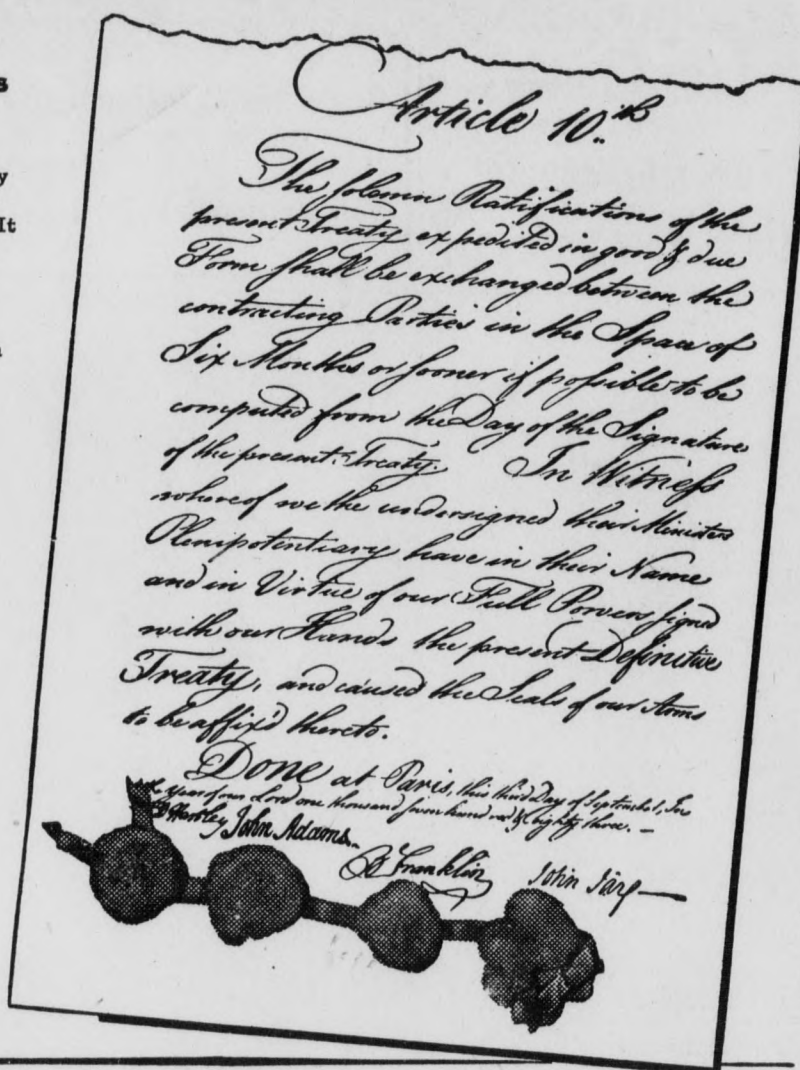 s
y
It
Article 10.th
The solemn Ratifications of the
present Treaty expedited in good & due
Form shall be exchanged between the
contracting Parties in the Space of
Six Months or sooner if possible to be
computed from the Day of the Signature
of the present Treaty. In Witness
whereof we the undersigned their Ministers
Plenipotentiary have in their Name
and in Virtue of our Full Powers signed
with our Hands the present Definitive
Treaty, and caused the Seals of our Arms
to be affix'd thereto.
Done at Paris, this third Day of September, In
Year of our Lord one thousand seven hundred & Eighty three. —
D Hartley John Adams.
B Franklin John Jay —